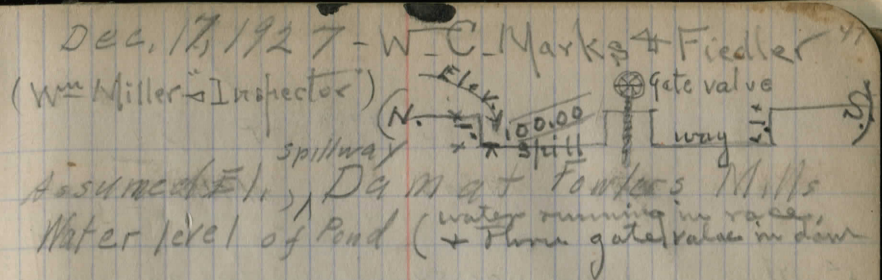 Dec. 17, 1927 - W. C. Marks & Fiedler 47
(Wm Miller - Inspector)
Elev. 100.00
Gate valve
(N.
spill way
S.)
spillway
Assumed El., Dam at Fowlers Mills
Water level of Pond (water running in race,
+ thru gate valve in dam